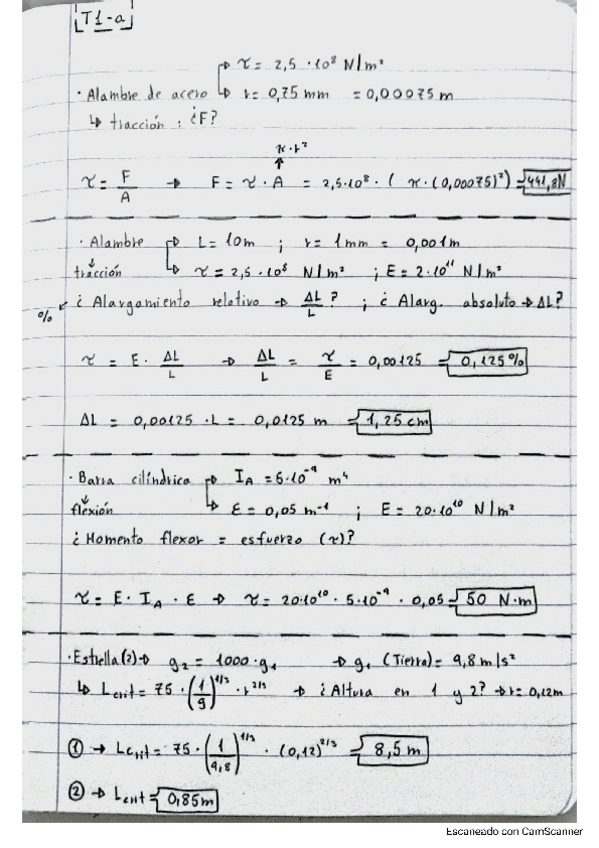 T1-a
↱ τ = 2,5 · 10⁸ N/m²
· Alambre de acero ↳ r = 0,75 mm = 0,00075 m
↳ tracción : ¿F?
π·r²
↑
τ = F/A → F = τ · A = 2,5·10⁸ · ( π · (0,00075)²) = 441,8N
· Alambre ↱ L = 10m ; r = 1mm = 0,001m
↓
tracción ↳ τ = 2,5 · 10⁸ N/m² ; E = 2·10¹¹ N/m²
% ↙ ¿ Alargamiento relativo → ΔL/L ? ; ¿ Alarg. absoluto → ΔL?
τ = E · ΔL/L → ΔL/L = τ/E = 0,00125 = 0,125%
ΔL = 0,00125 · L = 0,0125 m = 1,25 cm
· Barra cilíndrica ↱ I_A = 5·10⁻⁹ m⁴
↓
flexión ↳ ε = 0,05 m⁻¹ ; E = 20·10¹⁰ N/m²
¿ Momento flexor = esfuerzo (τ)?
τ = E · I_A · ε → τ = 20·10¹⁰ · 5·10⁻⁹ · 0,05 = 50 N·m
· Estrella(2) → g₂ = 1000 · g₁ → g₁ (Tierra) = 9,8 m/s²
↳ Lcrit = 75 · (1/g)^1/3 · r^2/3 → ¿Altura en 1 y 2? → r = 0,12m
① → Lcrit = 75 · (1/9,8)^1/3 · (0,12)^2/3 = 8,5 m
② → Lcrit = 0,85 m
Escaneado con CamScanner